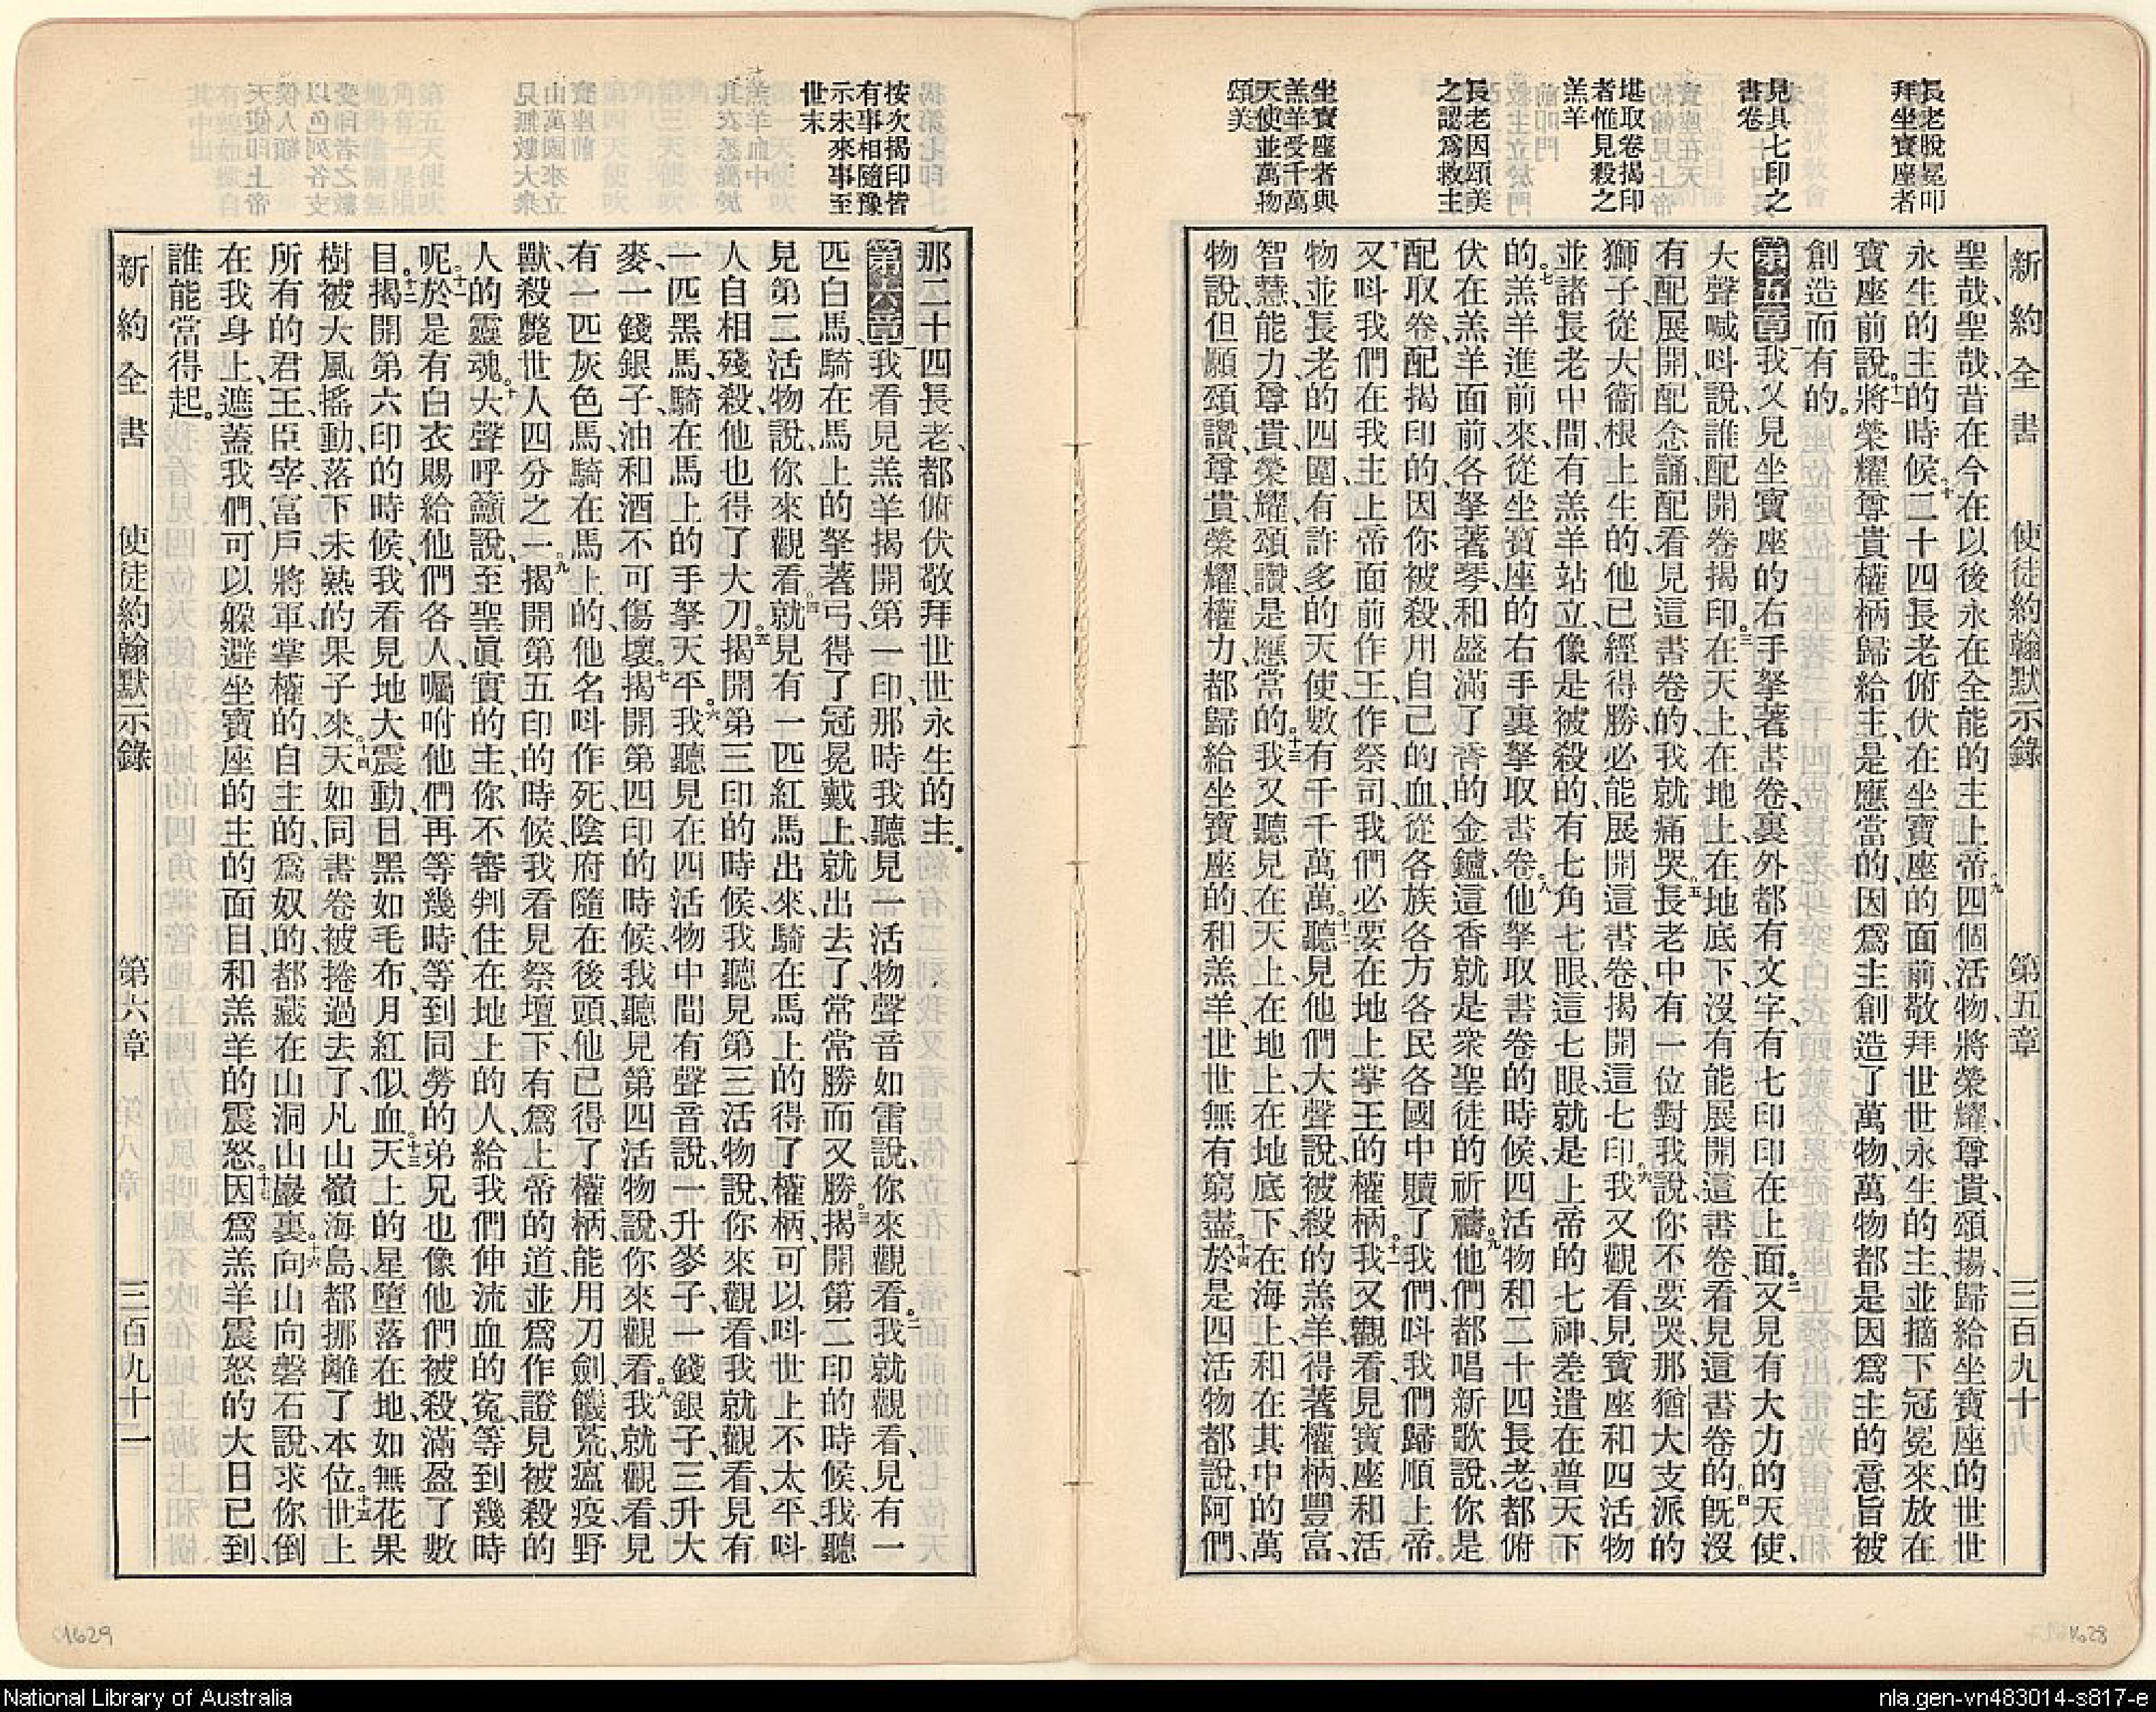 長老脫冕叩
拜坐寶座者
見具七印之
書卷
堪取卷揭印
者惟見殺之
羔羊
長老因頌美
之認爲救主
坐寶座者與
羔羊受千萬
天使並萬物
頌美
新約全書 使徒約翰默示錄 第五章 三百九十
聖哉、聖哉、昔在今在以後永在全能的主上帝。九四個活物、將榮耀、尊貴、頌揚、歸給坐寶座的世世
永生的主的時候、十二十四長老俯伏在坐寶座的面前、敬拜世世永生的主、並摘下冠冕來、放在
寶座前說、十一將榮耀尊貴權柄歸給主、是應當的、因爲主創造了萬物、萬物都是因爲主的意旨被
創造而有的。
第五章一我又見坐寶座的右手拏著書卷、裏外都有文字、有七印印在上面。二又見有大力的天使、
大聲喊呌說、誰配開卷揭印。三在天上、在地上、在地底下、沒有能展開這書卷、看見這書卷的。四旣沒
有配展開、配念誦、配看見這書卷的、我就痛哭。五長老中有一位對我說、你不要哭、那猶大支派的
獅子、從大衞根上生的、他已經得勝、必能展開這書卷、揭開這七印。六我又觀看、見寶座和四活物
並諸長老中間、有羔羊站立、像是被殺的、有七角七眼、這七眼、就是上帝的七神、差遣在普天下
的。七羔羊進前來、從坐寶座的右手裏拏取書卷。八他拏取書卷的時候、四活物和二十四長老、都俯
伏在羔羊面前、各拏著琴、和盛滿了香的金鑪、這香就是衆聖徒的祈禱。九他們都唱新歌說、你是
配取卷、配揭印的、因你被殺、用自己的血、從各族各方各民各國中贖了我們、呌我們歸順上帝。
十又呌我們在我主上帝面前作王、作祭司、我們必要在地上掌王的權柄。十一我又觀看、見寶座和活
物並長老的四圍、有許多的天使、數有千千萬萬、十二聽見他們大聲說、被殺的羔羊、得著權柄、豐富、
智慧、能力、尊貴、榮耀、頌讚、是應當的。十三我又聽見在天上、在地上、在地底下、在海上、和在其中的萬
物說、但願頌讚、尊貴、榮耀、權力、都歸給坐寶座的、和羔羊、世世無有窮盡。十四於是四活物都說、阿們、
按次揭印皆
有事相隨豫
示未來事至
世末
那二十四長老、都俯伏敬拜世世永生的主。
第六章一我看見羔羊揭開第一印、那時我聽見一活物聲音如雷說、你來觀看。二我就觀看、見有一
匹白馬、騎在馬上的拏著弓、得了冠冕戴上、就出去了、常常勝而又勝。三揭開第二印的時候、我聽
見第二活物說、你來觀看。四就見有一匹紅馬出來、騎在馬上的得了權柄、可以呌世上不太平、呌
人自相殘殺、他也得了大刀。五揭開第三印的時候、我聽見第三活物說、你來觀看、我就觀看、見有
一匹黑馬、騎在馬上的手拏天平。六我聽見在四活物中間有聲音說、一升麥子、一錢銀子、三升大
麥、一錢銀子、油和酒不可傷壞。七揭開第四印的時候、我聽見第四活物說、你來觀看。八我就觀看、見
有一匹灰色馬、騎在馬上的、他名呌作死、陰府隨在後頭、他已得了權柄、能用刀劍、饑荒、瘟疫、野
獸、殺斃世人四分之一。九揭開第五印的時候、我看見祭壇下、有爲上帝的道、並爲作證見被殺的
人的靈魂。十大聲呼籲說、至聖眞實的主、你不審判住在地上的人、給我們伸流血的寃、等到幾時
呢。十一於是有白衣賜給他們各人、囑咐他們、再等幾時、等到同勞的弟兄、也像他們被殺、滿盈了數
目。十二揭開第六印的時候、我看見地大震動、日黑如毛布、月紅似血。十三天上的星墮落在地、如無花果
樹、被大風搖動、落下未熟的果子來。十四天如同書卷、被捲過去了、凡山嶺海島、都挪離了本位。十五世上
所有的君王、臣宰、富戶、將軍、掌權的、自主的、爲奴的、都藏在山洞山巖裏。十六向山向磐石說、求你倒
在我身上、遮蓋我們、可以躱避坐寶座的主的面目、和羔羊的震怒。十七因爲羔羊震怒的大日已到、
誰能當得起。
新約全書 使徒約翰默示錄 第六章 三百九十一
1629
1628
National Library of Australia
nla.gen-vn483014-s817-e